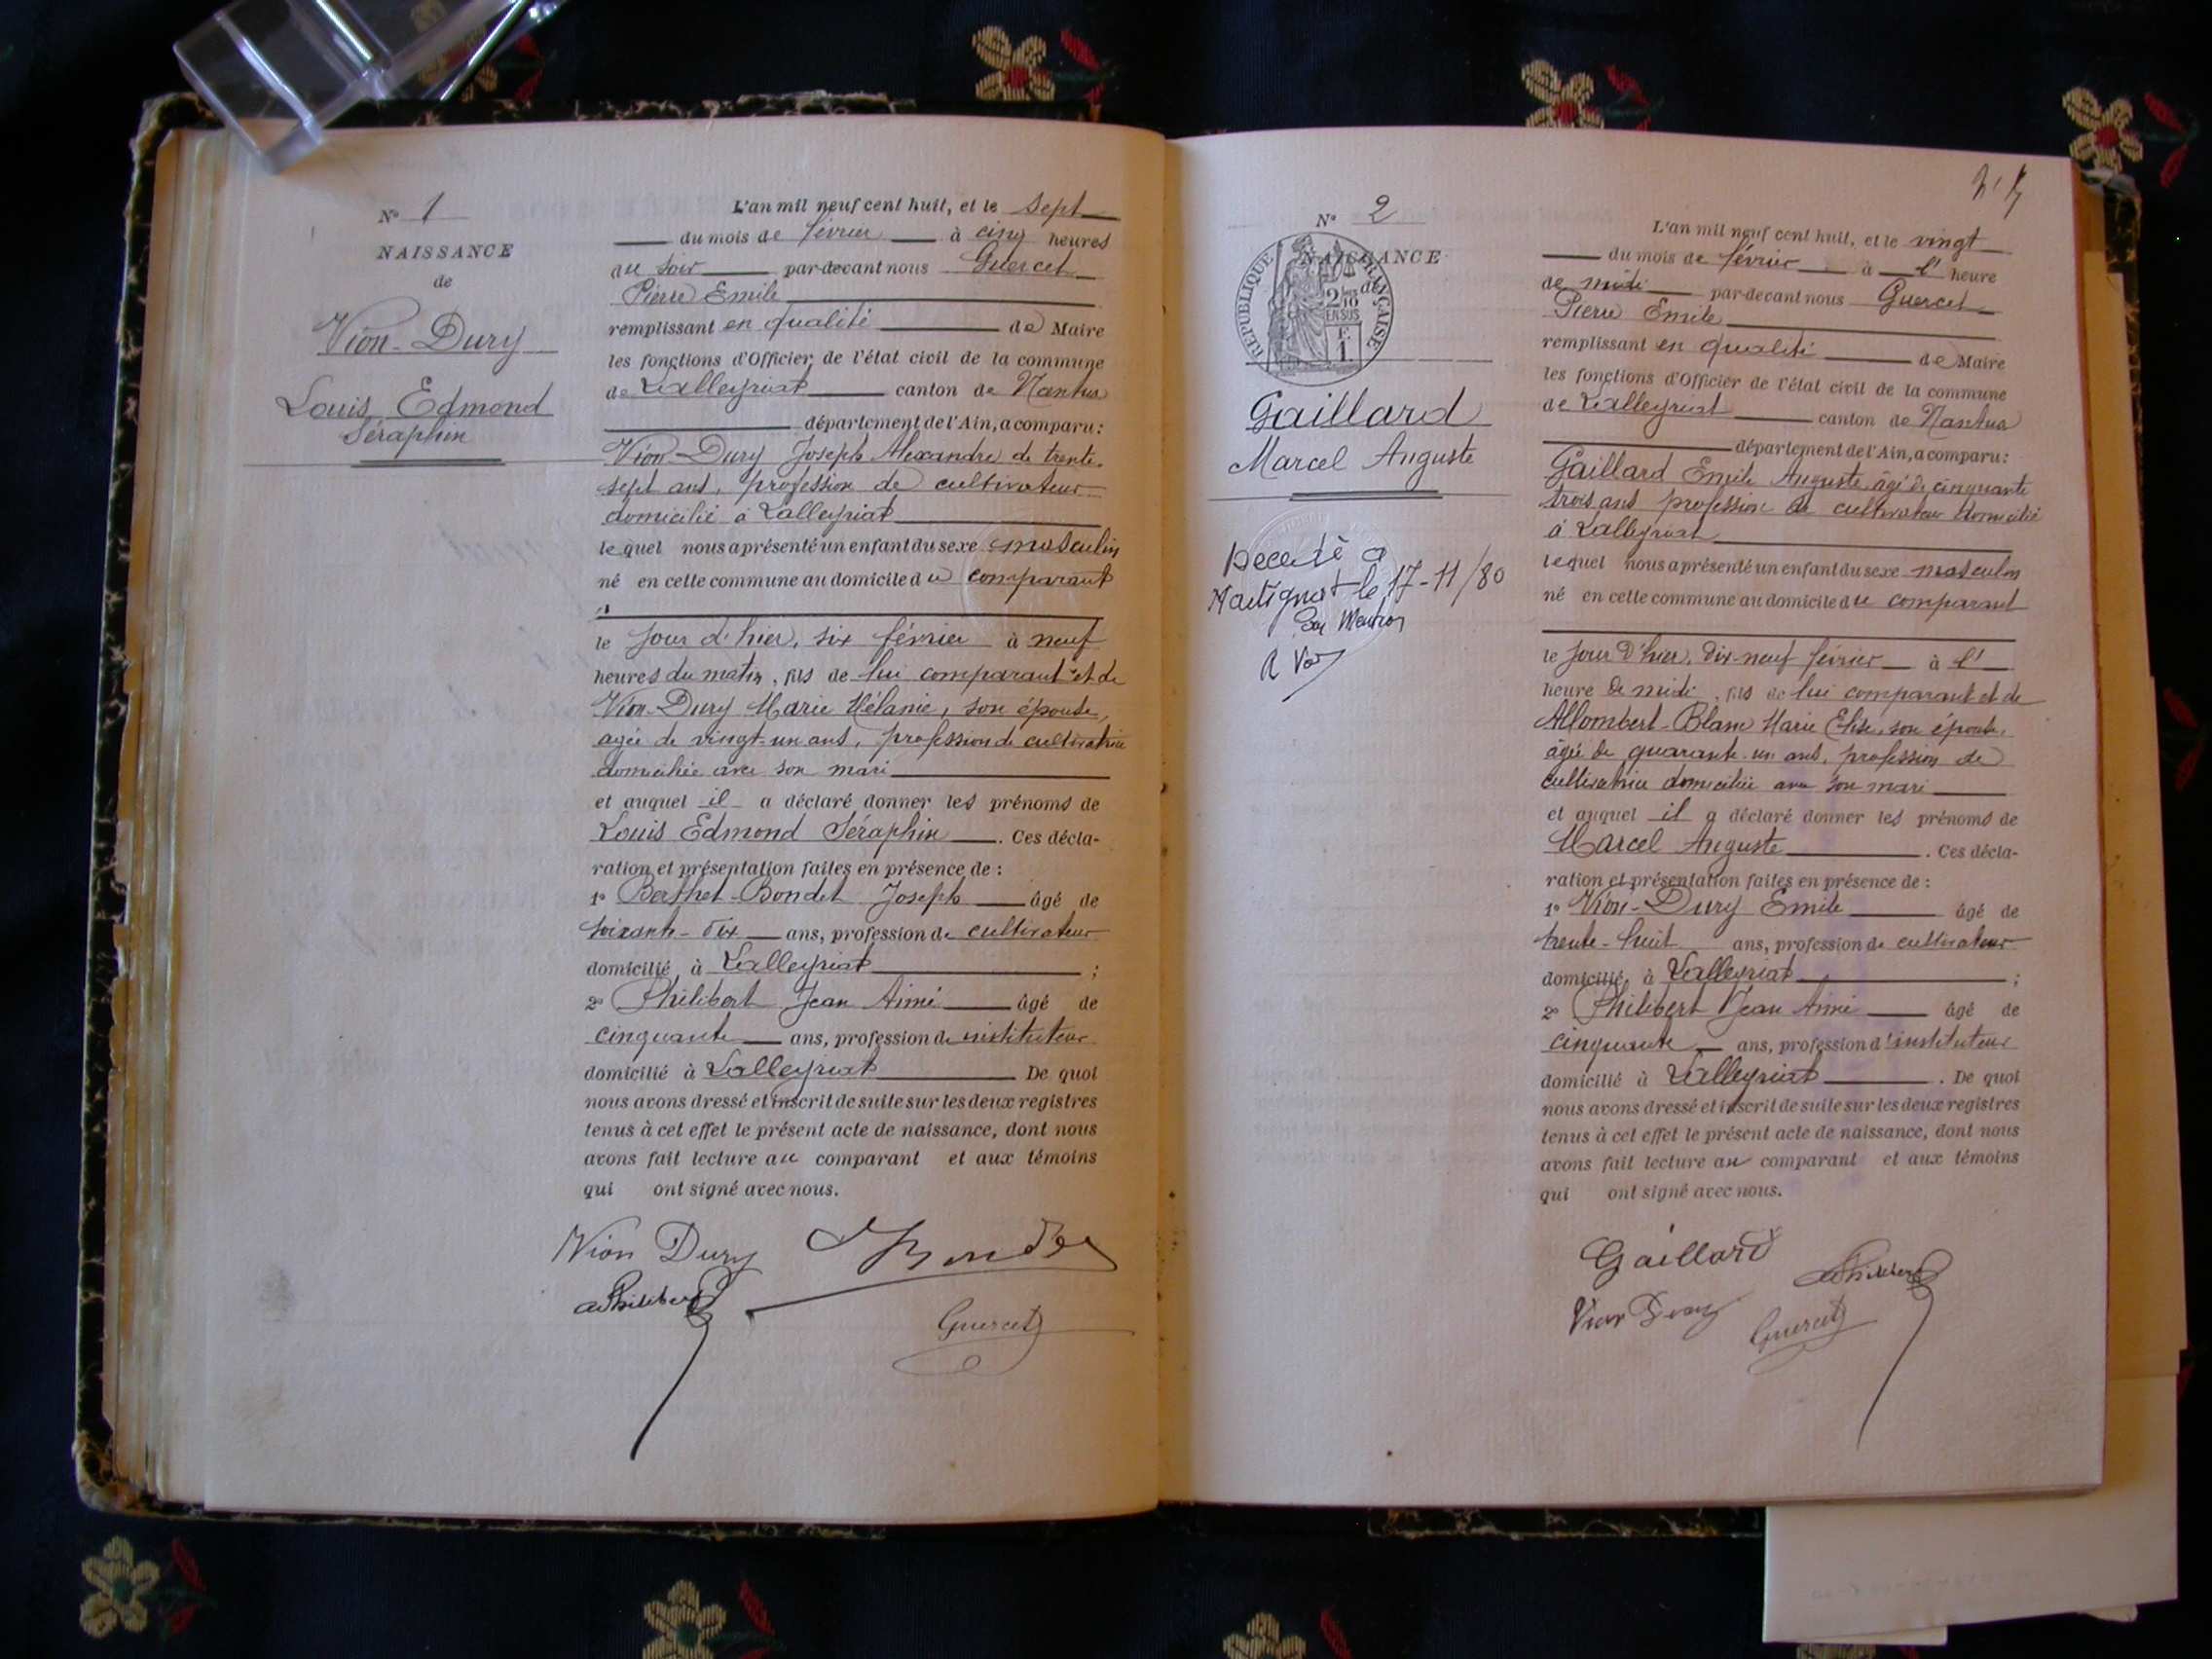 N° 1
NAISSANCE
de
Vion-Dury
Louis Edmond
Séraphin
L'an mil neuf cent huit, et le sept
du mois de février à cinq heures
du soir par-devant nous Guercet
Pierre Emile
remplissant en qualité de Maire
les fonctions d'Officier de l'état civil de la commune
de Lalleyriat canton de Nantua
département de l'Ain, a comparu :
Vion-Dury Joseph Alexandre de trente-
sept ans, profession de cultivateur
domicilié à Lalleyriat
lequel nous a présenté un enfant du sexe masculin
né en cette commune au domicile du comparant
le jour d'hier, six février à neuf
heures du matin, fils de lui comparant et de
Vion-Dury Marie Mélanie, son épouse,
agée de vingt-un ans, profession de cultivatrice
domiciliée avec son mari
et auquel il a déclaré donner les prénoms de
Louis Edmond Séraphin. Ces décla-
ration et présentation faites en présence de :
1° Berthet-Bondet Joseph âgé de
soixante-dix ans, profession de cultivateur
domicilié à Lalleyriat ;
2° Philibert Jean Aimé âgé de
cinquante ans, profession de instituteur
domicilié à Lalleyriat De quoi
nous avons dressé et inscrit de suite sur les deux registres
tenus à cet effet le présent acte de naissance, dont nous
avons fait lecture au comparant et aux témoins
qui ont signé avec nous.
Vion Dury
aPhilibert
Guercet
N° 2
NAISSANCE
de
RÉPUBLIQUE FRANÇAISE
2/10
EN SUS
F.
1.
Gaillard
Marcel Auguste
Decedé a
Martignat le 17-11/80
L'an mil neuf cent huit, et le vingt
du mois de février à l' heure
de midi par-devant nous Guercet
Pierre Emile
remplissant en qualité de Maire
les fonctions d'Officier de l'état civil de la commune
de Lalleyriat canton de Nantua
département de l'Ain, a comparu :
Gaillard Emile Auguste, âgé de cinquante
trois ans profession de cultivateur domicilié
à Lalleyriat
lequel nous a présenté un enfant du sexe masculin
né en cette commune au domicile du comparant
le jour d'hier, dix-neuf février à l'
heure de midi, fils de lui comparant et de
Allombert-Blanc Marie Elise, son épouse,
âgée de quarante-un ans, profession de
cultivatrice domiciliée avec son mari
et auquel il a déclaré donner les prénoms de
Marcel Auguste. Ces décla-
ration et présentation faites en présence de :
1° Vion-Dury Emile âgé de
trente-huit ans, profession de cultivateur
domicilié à Lalleyriat ;
2° Philibert Jean Aimé âgé de
cinquante ans, profession d'instituteur
domicilié à Lalleyriat. De quoi
nous avons dressé et inscrit de suite sur les deux registres
tenus à cet effet le présent acte de naissance, dont nous
avons fait lecture au comparant et aux témoins
qui ont signé avec nous.
Gaillard
aPhilibert
Vion Dury
Guercet